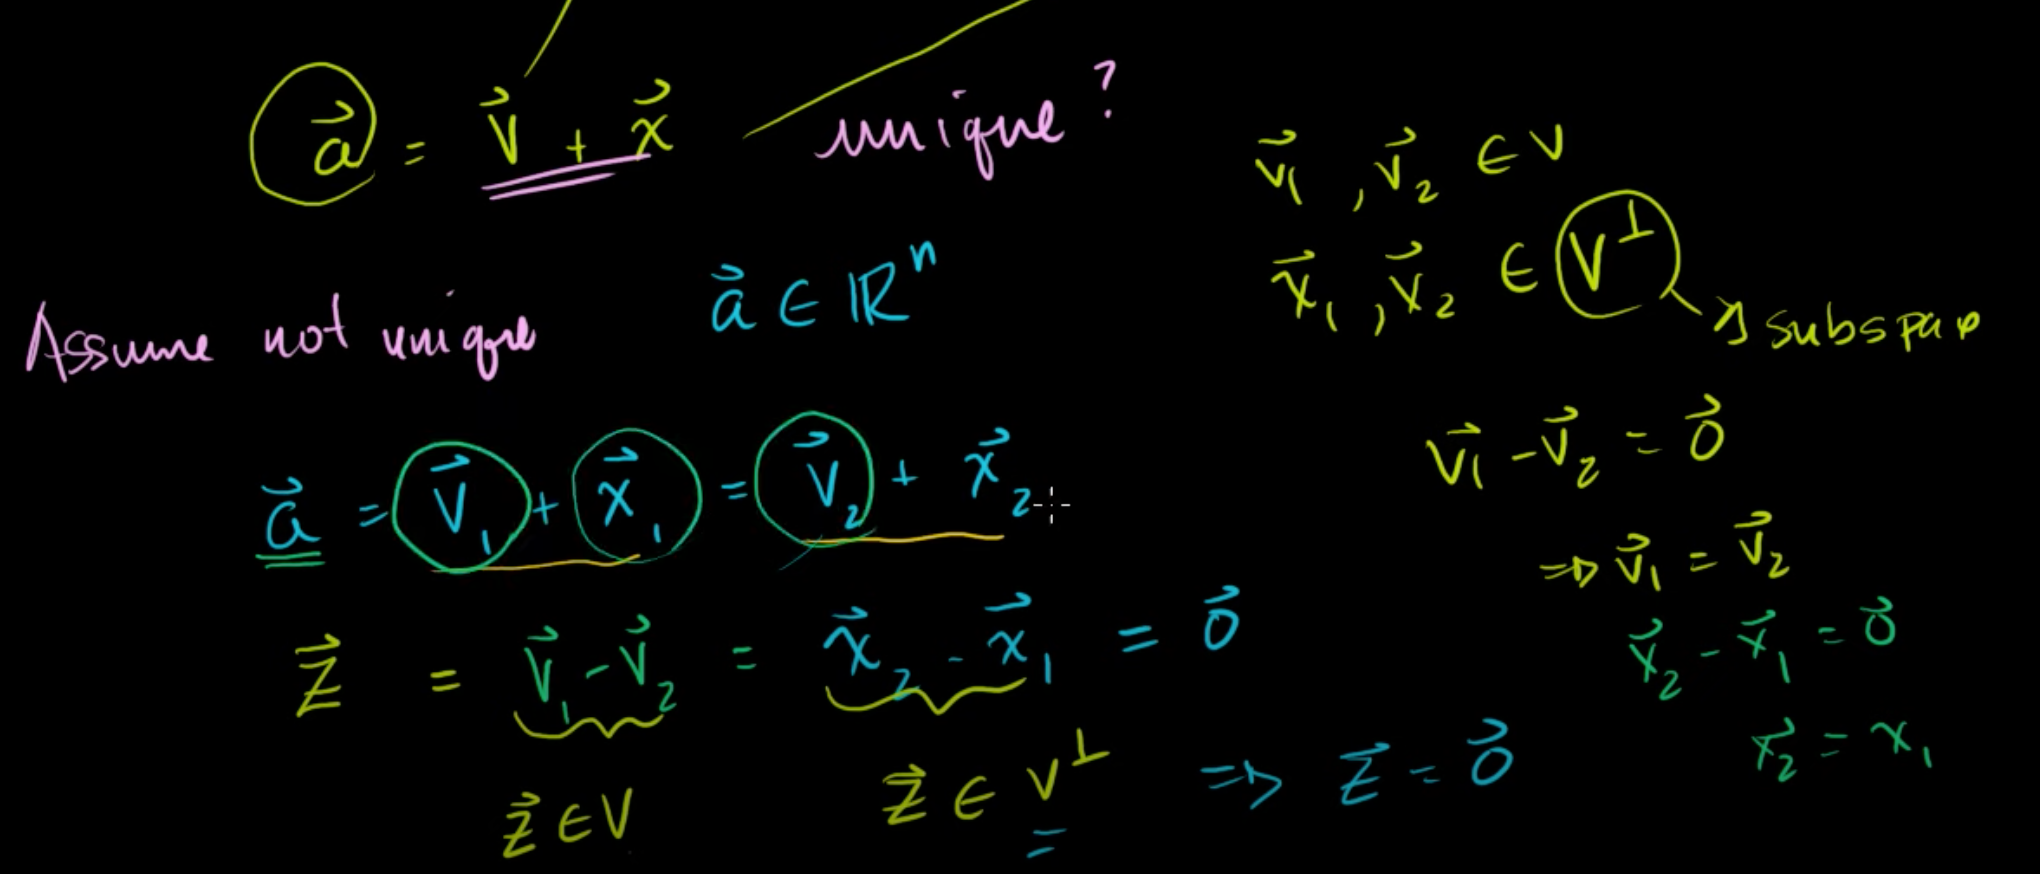 a⃗ = v⃗ + x⃗ unique?
v⃗₁, v⃗₂ ∈ V
a⃗ ∈ ℝⁿ
x⃗₁, x⃗₂ ∈ V^⊥
Assume not unique
v⃗₁ - v⃗₂ = 0⃗
a⃗ = v⃗₁ + x⃗₁ = v⃗₂ + x⃗₂
⇒ v⃗₁ = v⃗₂
z⃗ = v⃗₁ - v⃗₂ = x⃗₂ - x⃗₁ = 0⃗
x⃗₂ - x⃗₁ = 0⃗
x⃗₂ = x₁
z⃗ ∈ V
z⃗ ∈ V^⊥ ⇒ z⃗ = 0⃗